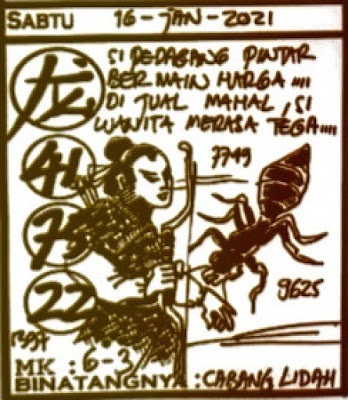 SABTU 16-JAN-2021
SI PEDAGANG PINTAR
BERMAIN HARGA....
DI JUAL MAHAL, SI
WANITA MERASA TEGA....
龙
41
75
22
7749
9625
MK : 6-3
BINATANGNYA : CABANG LIDAH